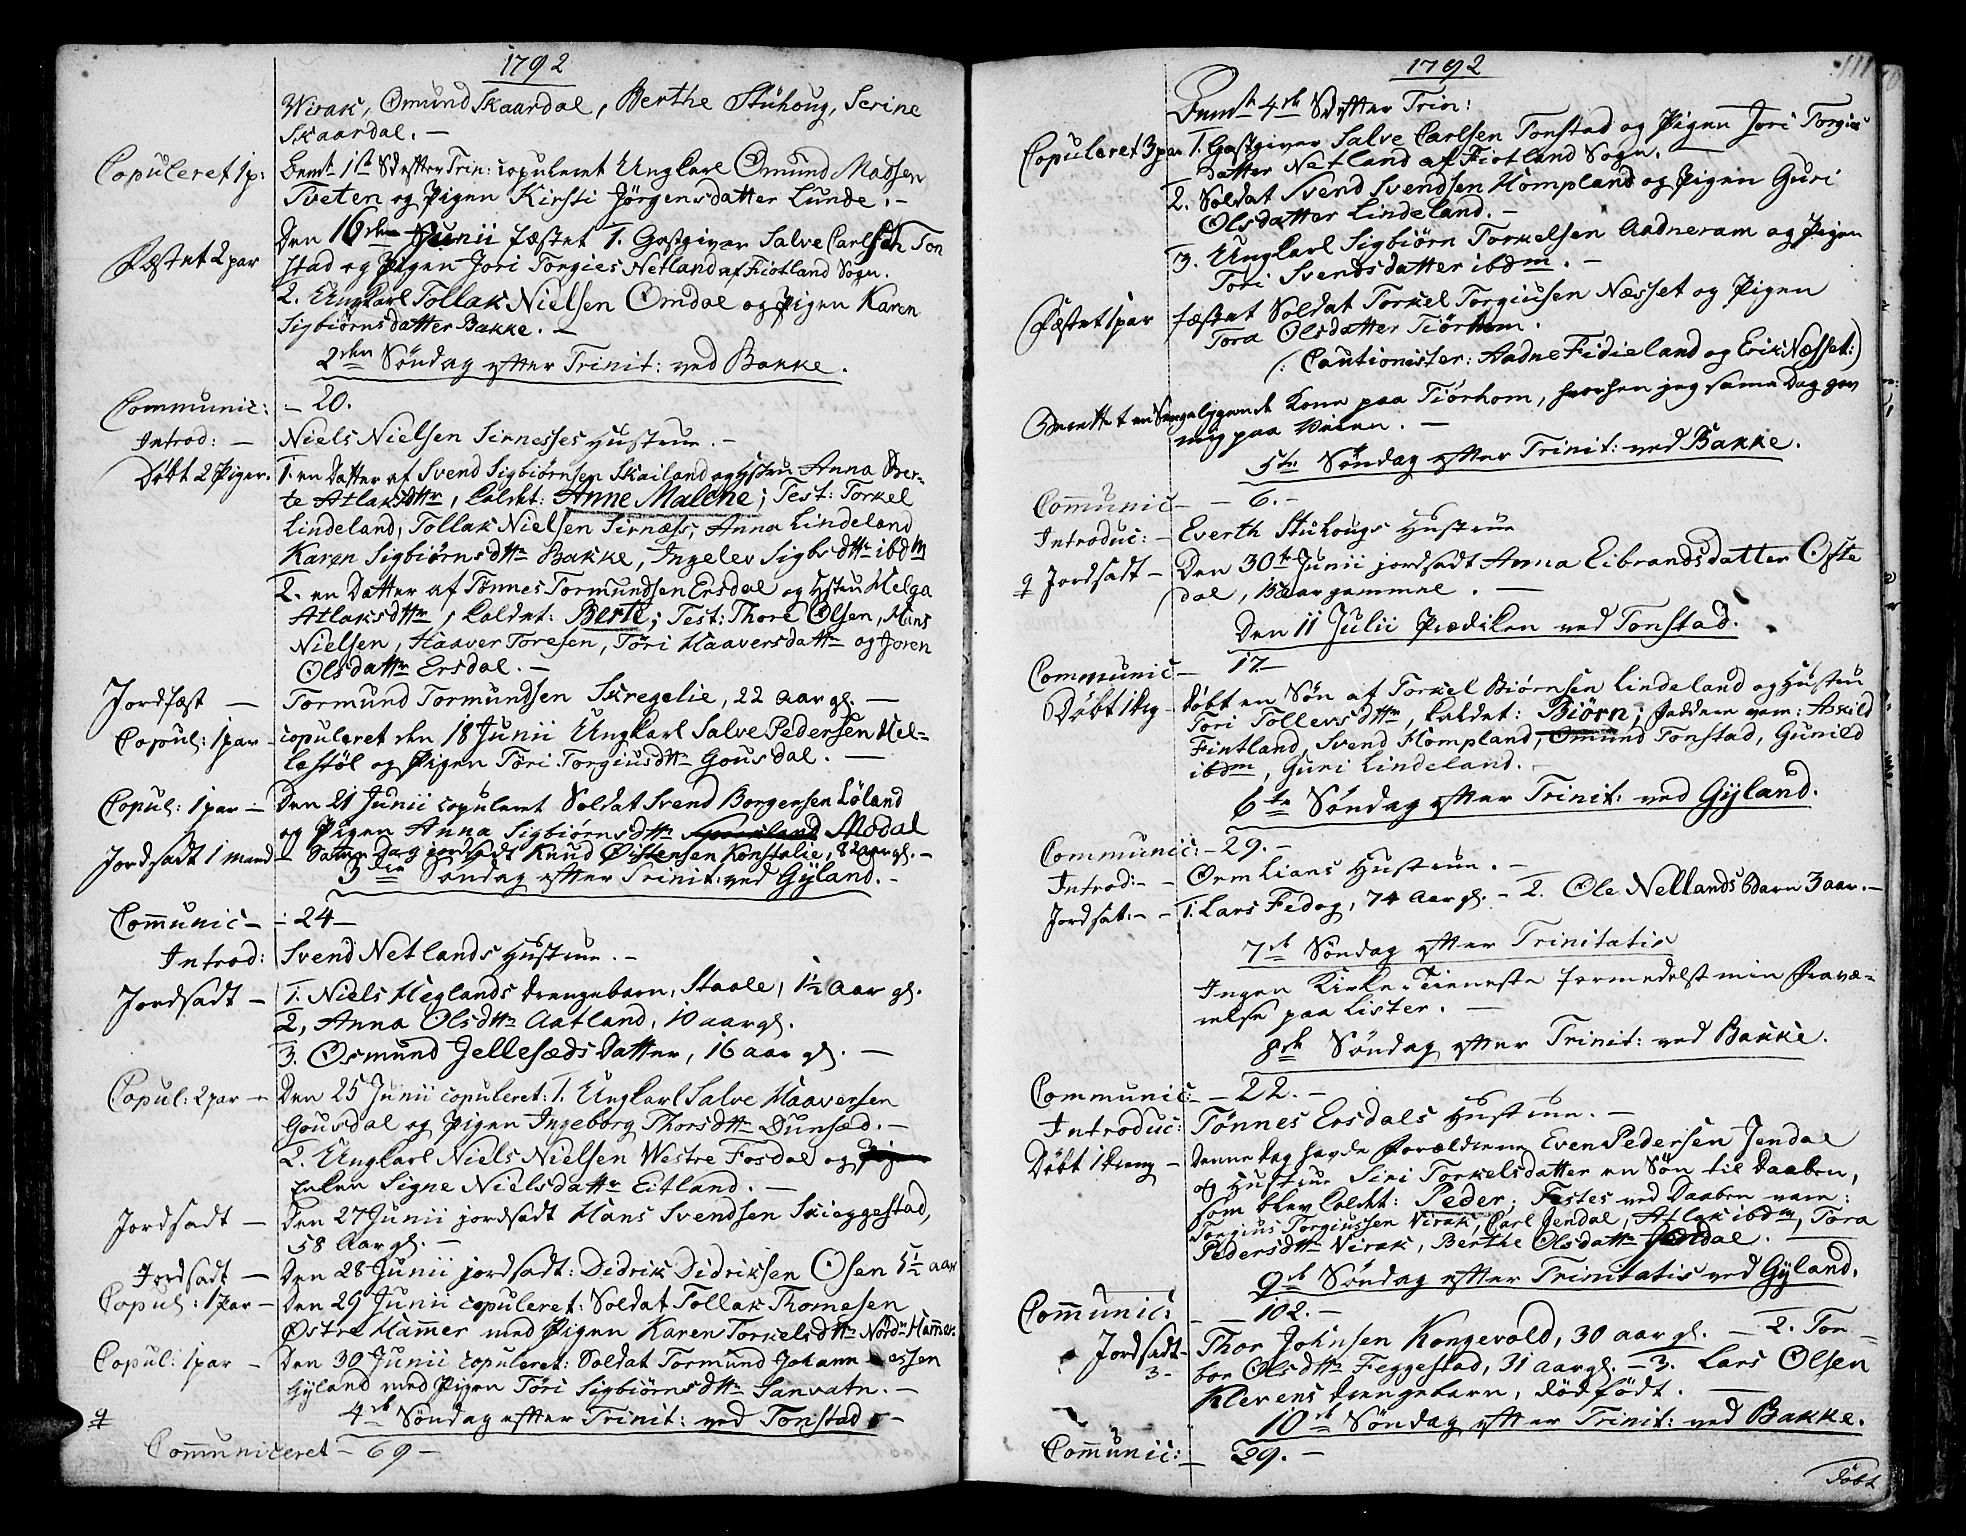 1792
Wirak, Omund Skaardal, Berthe Stuhoug, Serine
Skaardal. —
Copuleret 1 p: Dom: 1st S. efter Trin: copuleret Ungkarl Omund Madsen
Tveten og Pigen Kirsti Jörgensdatter Lunde. —
Fæstet 2 par Den 16den Junii fæstet 1. Gastgiver Salve Carlsen Ton
stad og Pigen Jori Torgies Netland af Fiotland Sogn.
2. Ungkarl Tollak Nielsen Omdal og Pigen Karen
Sigbiörnsdatter Bakke. —
2den Söndag efter Trinit: ved Bakke.
Communic: — 20.
Introd: — Niels Nielsen Sirnesses Hustrue. —
Döbt 2 Piger. 1. en Datter af Svend Sigbiörnsen Skailand og Hstru Anna Ber-
te Atlaksdttr, kaldet: Anne Malene; Test: Torkel
Lindeland, Tollak Nielsen Sirnæss, Anna Lindeland
Karen Sigbiörnsdttr Bakke, Ingeler Sigbsdttr ibdm
2. en Datter af Tönnes Tormundsen Ersdal og Hstru Helga
Atlaksdttr, kaldet: Berte; Test: Thore Olsen, Hans
Nielsen, Haaver Toresen, Töri Haaversdattr og Joren
Olsdattr Ersdal. —
Jordfæst — Tormund Tormundsen Skregelie, 22 aar gl. —
Copoul: 1 par — copuleret den 18 Junii Ungkarl Salve Pedersen Mel-
lestöl og Pigen Töri Torgiusdttr Gousdal. —
Copul: 1 par — Den 21 Junii copuleret Soldat Svend Borgersen Löland
og Pigen Anna Sigbiörnsdttr Modal
Jordsadt 1 mand — Samme Dag jordsadt Knud Östensen Konstalie, 82 aar gl. —
3die Söndag efter Trinit: ved Gyland. —
Comunic — : 24 —
Introd: Svend Netlands Hustrue. —
Jordsadt — 1. Niels Meglands Drengebarn, Staale, 1½ aar gl.
2, Anna Olsdttr Aatland, 10 aar gl.
3. Osmund Jellesæds Datter, 16 aar gl. —
Copul: 2 par — Den 25 Junii copuleret: 1. Ungkarl Salve Haaversen
Gousdal og Pigen Ingeborg Thorsdttr Dunsæd. —
2. Ungkarl Niels Nielsen Westre Fosdal og
Enken Signe Nielsdattr Eitland. —
Jordsadt — Den 27 Junii jordsadt Hans Svendsen Skieggestad,
58 Aar gl. —
Jordsadt — Den 28 Junii jordsadt: Didrik Didriksen Osen 5½ aar
Copul: 1 Par — Den 29 Junii copuleret: Soldat Tollak Thomesen
Östre Hammer med Pigen Karen Torkelsdttr Nördr Hammer.
Copul: 1 par — Den 30 Junii copuleret: Soldat Tormund Johannessen
Gyland med Pigen Töri Sigbiörnsdttr Sanvatn. —
4de Söndag efter Trinit: ved Tonstad —
Communiceret — 69 —
1792
111
Dom: 4de S. efter Trin:
Copuleret 3 par 1. Gastgiver Salve Carlsen Tonstad og Pigen Jori Torgies
datter Netland af Fiotland Sogn.
2. Soldat Svend Svendsen Hompland og Pigen Guri
Olsdatter Lindeland. —
3. Ungkarl Sigbiörn Torkelsen Aadneram og Pigen
Tori Svendsdatter ibdm. —
Fæstet 1 par fæstet Soldat Torkel Torgiusen Næsset og Pigen
Tora Olsdatter Tiörhom.
(: Cautionister: Aadne Fidieland og Erik Næsset:)
Berettet en Sengeliggende Kone paa Tiörhom, hvorhen jeg samme Dag gav
mig paa Veien. —
5te Söndag efter Trinit: ved Bakke.
Communic — 6. —
Introduc: — Everth Stuhougs Hustrue
Jordsadt — Den 30te Junii jordsadt Anna Eibrandsdatter Ofte
dal, aar gammel. —
Den 11 Julii Prædiken ved Tonstad.
Communic — 17 —
Döbt 1 Drg — Döbt en Sön af Torkel Biörnsen Lindeland og Hustrue
Tori Tollevsdttr, kaldet: Biörn; Faddere vare: Askild
Fintland, Svend Hompland, Omund Tonstad, Gunild
ibdm, Guri Lindeland. —
6te Söndag efter Trinit: ved Gyland.
Communic: — 29. —
Introd: — Orm Lians Hustrue. —
Jordsat: — 1. Lars Fedog, 74 Aar gl. — 2. Ole Netlands Barn 3 aar. —
7de Söndag efter Trinitatis
Ingen Kirke-Tieneste formedelst min Fravæ-
relse paa Lister. —
8de Söndag efter Trinit: ved Bakke.
Communic: — 22. —
Introduc: Tönnes Ersdals Hustrue. —
Döbt 1 Dreng — Denne Dag havde Forældrene Even Pedersen Jendal
og Hustrue Siri Torkelsdatter en Sön til Daaben,
som blev kaldt: Peder; Testes ved Daaben vare:
Torgius Torgiussen Virak, Carl Jendal, Atlak ibdm, Tora
Pedersdttr Virak, Berthe Olsdattr Jendal. —
9de Söndag efter Trinitatis ved Gyland.
Communic: — 102. —
Jordsadt — Thor Johnsen Kongevold, 30 aar gl. — 2. Ton —
3 — bor Olsdttr Feggestad, 31 aar gl. — 3. Lars Olsen
Klevens Drengebarn, dödfödt. —
10de Söndag efter Trinit: ved Bakke.
Communic: — 29. —
Döbt